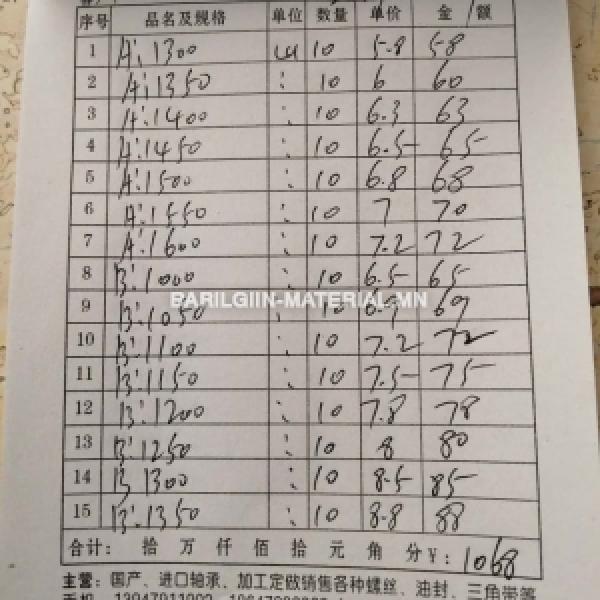 序号 品名及规格 单位 数量 单价 金/额
1 A:1300 10 5.8 58
2 A:1350 : 10 6 60
3 A:1400 : 10 6.3 63
4 A:1450 : 10 6.5 65
5 A:1500 : 10 6.8 68
6 A:1550 : 10 7 70
7 A:1600 : 10 7.2 72
8 B:1000 : 10 6.5 65
BARILGIIN-MATERIAL.MN
9 B:1050 : 10 6.9 69
10 B:1100 : 10 7.2 72
11 B:1150 : 10 7.5 75
12 B:1200 : 10 7.8 78
13 B:1250 : 10 8 80
14 B 1300 : 10 8.5 85
15 B:1350 : 10 8.8 88
合计: 拾 万 仟 佰 拾 元 角 分¥: 1068
主营: 国产、进口轴承、加工定做销售各种螺丝、油封、三角带等